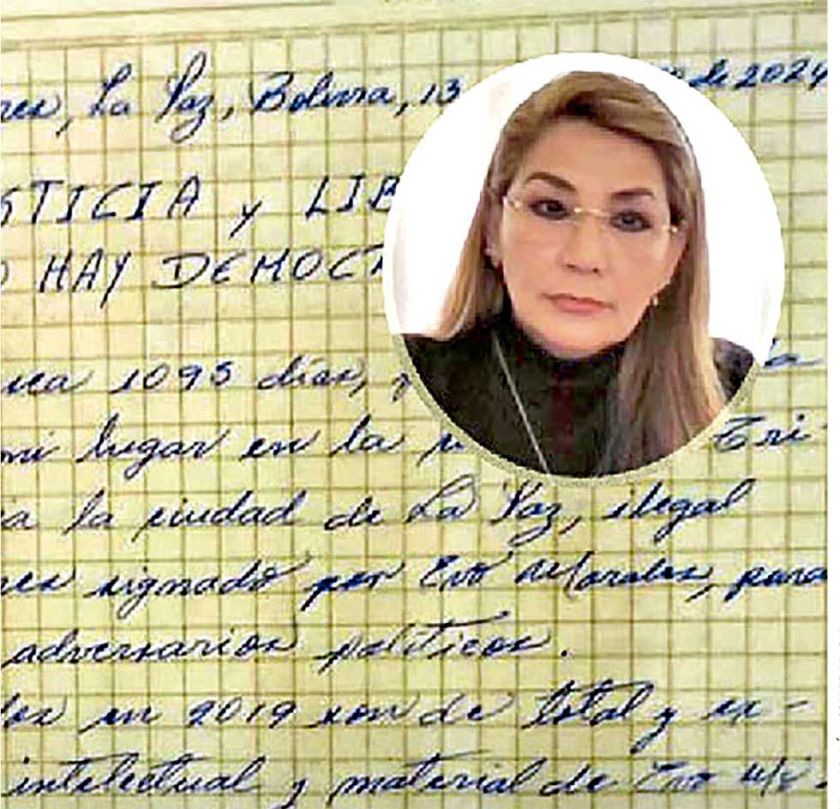 res, La Paz, Bolivia, 13 de 2024
STICIA y LIB
HAY DEMOC
1095 días,
mi lugar en la
a la ciudad de La Paz, ilegal
signado por Evo Morales, para
adversarios políticos.
en 2019 son de total y ex-
intelectual y material de Evo